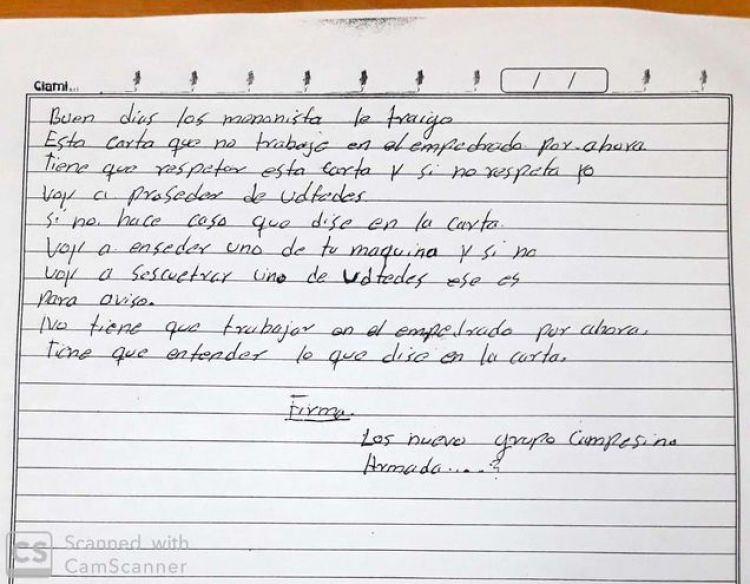 Ciami...
/ /
Buen dias los menonista le traigo
Esta carta que no trabaje en el empedrado por ahora
Tiene que respetar esta carta y si no respeta yo
voy a proseder de udtedes
si no hace caso que dise en la carta.
Voy a enseder uno de tu maquina y si no
voy a sescuetrar uno de udtedes ese es
para aviso.
No tiene que trabajar en el empedrado por ahora.
Tiene que entender lo que dise en la carta.
Firma.
Los nuevo grupo Campesino
Armada....
CS Scanned with
CamScanner